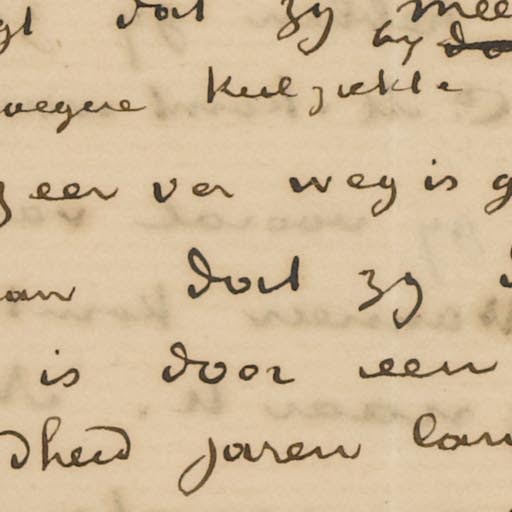 dat zy mee
by
wegene keelziekte
zeer ver weg is g
an dat zy
is door een
dheid jaren lan